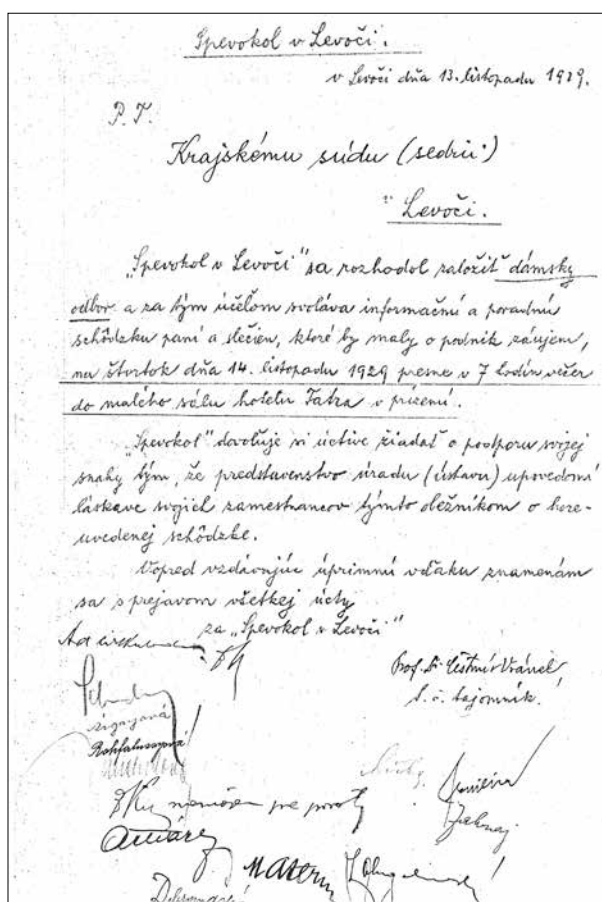 Spevokol v Levoči.
v Levoči dňa 13. listopadu 1929.
P. T.
Krajskému súdu (sedrii)
v Levoči.
„Spevokol v Levoči" sa rozhodol založiť dámsky
odbor a za tým účelom svoláva informačnú a poradnú
schôdzku paní a slečien, ktoré by maly o podnik záujem,
na štvrtok dňa 14. listopadu 1929 presne v 7 hodín večer
do malého sálu hotelu Tatra v prízemí.
„Spevokol" dovoľuje si úctive žiadať o podporu svojej
snahy tým, že predstavenstvo úradu (ústavu) upovedomí
láskave svojich zamestnancov týmto obežníkom o hore-
uvedenej schôdzke.
Vopred vzdávajúc úprimnú vďaku znamenám
sa s prejavom všetkej úcty
za „Spevokol v Levoči"
Prof. Dr. Čestmír Vránek,
t. č. tajomník.